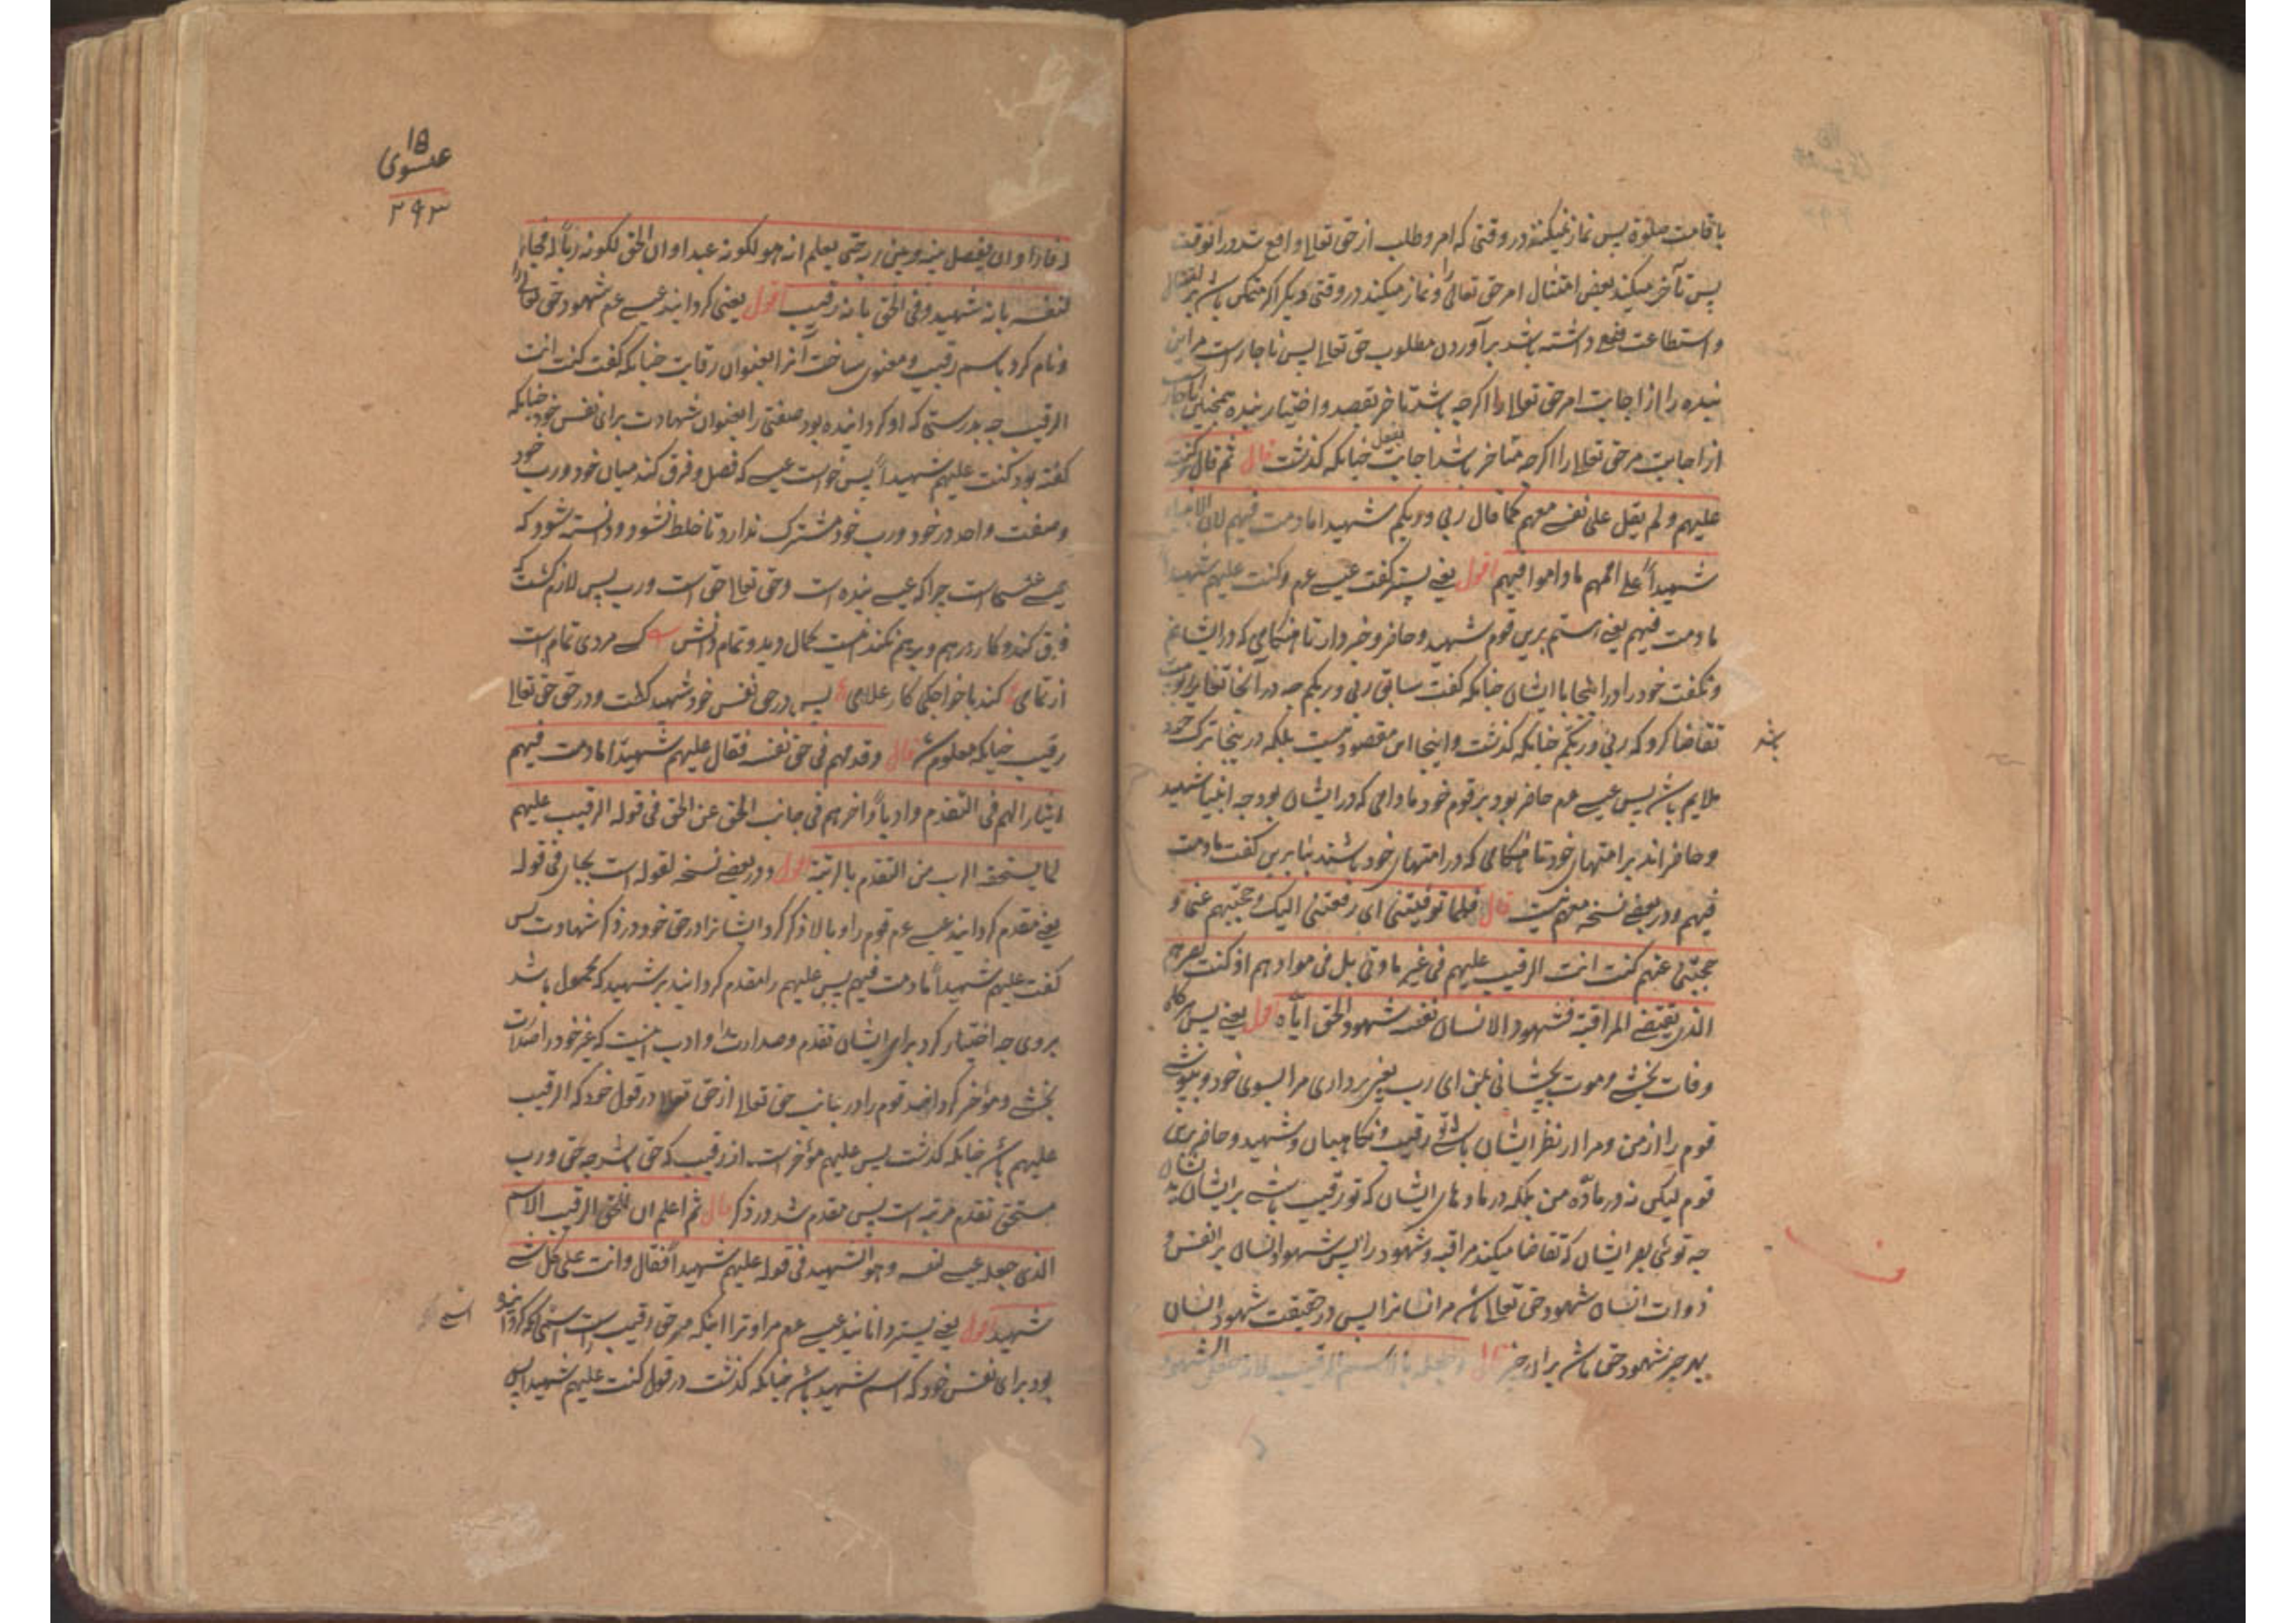 باقامت صلوة پس نماز نمیکنند در وقتی که امر و طلب از حق تعالی واقع شد در آنوقت
پس تأخر میکند بعض امتثال امر حق تعالی را و نماز میکند در وقتی دیگر اگر متمکن باشد بر امتثال
و استطاعت فعل داشته باشد برآوردن مطلوب حق تعالی پس ناچار است مر این
بنده را از اجابت امر حق تعالی را اگرچه باشد تاخر بقصد و اختیار بنده همچنین ناچار
از اجابت مر حق تعالی را اگرچه متأخر باشد اجابت بفعل چنانکه گذشت قال ثم قال و کنت
علیهم و لم یقل علی نفسی معهم کما قال ربی و ربکم شهیدا ما دمت فیهم لان الانبیاء
شهیداً علی اممهم ما داموا فیهم اقول یعنی پستر گفت عیسی عم و کنت علیهم شهیداً
ما دمت فیهم یعنی استم برین قوم شهید و حاضر و خبردار تا هنگامی که در ایشانم
و نگفت خود را در اینجا با ایشان چنانکه گفت سابق ربی و ربکم چه در آنجا
تقاضا کرد که ربی و ربکم چنانکه گذشت و اینجا این مقصود نیست بلکه درینجا ترک خود
ملایم باشد پس عیسی عم حاضر بود بر قوم خود ما دامی که در ایشان بود چه انبیا شهید
و حاضراند بر امتهای خود تا هنگامی که در امتهای خود باشند بنابرین گفت ما دمت
فیهم و در بعضی نسخه معهم نیست قال فلما توفیتنی ای رفعتنی الیک و حجبتهم عنی و
حجبتنی عنهم کنت انت الرقیب علیهم فی غیر مادتی بل فی موادهم اذ کنت بصرهم
الذی یقتضی المراقبة فشهود الانسان نفسه شهود الحق ایاه اقول یعنی پس هرگاه
وفات بخشی و موت بچشانی بمن ای رب یعنی برداری مرا بسوی خود و بپوشی
قوم را از من و مرا از نظر ایشان باشی تو رقیب و نگاهبان و شهید و حاضر برین
قوم لیکن نه در ماده من بلکه در مادهای ایشان که تو رقیب باشی بر ایشان
چه توئی بصر ایشان که تقاضا میکند مراقبه و شهود را پس شهود انسان بر انفس و
ذوات انسان شهود حق تعالی باشد مر انسانرا پس در حقیقت شهود انسان
بهر چیز شهود حق باشد بر آن چیز قال و جعله بالاسم الرقیب لانه جعل الشهود
باشد
۱۵
عیسوی
۲۹۳
له فاراد ان یفصل بینه و بین ربه حتی یعلم انه هو لکونه عبدا و ان الحق لکونه رباً له فجاء
لنفسه بانه شهید و فی الحق بانه رقیب اقول یعنی گردانید عیسی عم شهود حق تعالی را
و نام کرد باسم رقیب و معنون ساخت آنرا بعنوان رقابت چنانکه گفت کنت انت
الرقیب چه بدرستی که او گردانیده بود صفتی را بعنوان شهادت برای نفس خود چنانکه
گفته بود کنت علیهم شهیداً پس خواست عیسی که فصل و فرق کند میان خود و رب خود
و صفت واحد در خود و رب خود مشترک ندارد تا خلط نشود و دانسته شود که
عیسی عیسی است چرا که عیسی بنده است و حق تعالی حق است و رب پس لازم گشت که
فرق کند و کار درهم و برهم نکند اینست کمال دید و تمام دانش کسی مردی تمام است
از تمامی کند با خواجگی کار غلامی پس در حق نفس خود شهید گفت و در حق حق تعالی
رقیب چنانکه معلوم شد قال و قدمهم فی حق نفسه فقال علیهم شهیداً ما دمت فیهم
ایثارا لهم فی التقدم و ادباً و اخرهم فی جانب الحق عن الحق فی قوله الرقیب علیهم
لما یستحقه الرب من التقدم بالرتبة اقول و در بعضی نسخه لقوله است بجای فی قوله
یعنی مقدم گردانید عیسی عم قوم را و بالا ذکر کرد ایشانرا در حق خود در ذکر شهادت پس
گفت علیهم شهیداً ما دمت فیهم پس علیهم را مقدم گردانید بر شهید که محمول باشد
بروی چه اختیار کرد برای ایشان تقدم و صدارت را و ادب اینست که غیر خود را صدارت
بخشی و مؤخر گردانید قوم را در جانب حق تعالی از حق تعالی در قول خود که الرقیب
علیهم باشد چنانکه گذشت پس علیهم مؤخر است از رقیب که حق باشد چه حق و رب
مستحق تقدم مرتبه است پس مقدم شد در ذکر قال ثم اعلم ان للحق الرقیب الاسم
الذی جعله عیسی لنفسه و هو الشهید فی قوله علیهم شهیداً فقال و انت علی کل شی
شهید اقول یعنی پستر دانانید عیسی عم مر او ترا اینکه مر حق رقیب راست اسمی که گردانیده
بود برای نفس خود که اسم شهید باشد چنانکه گذشت در قول کنت علیهم شهیدا پس